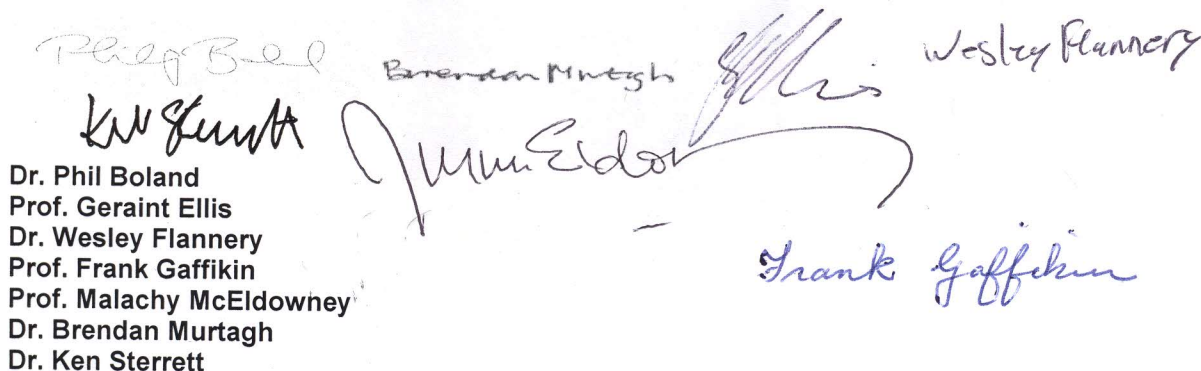 Philip Boland
Brendan Murtagh
G Ellis
Wesley Flannery
Ken Sterrett
M McEldowney
Frank Gaffikin
Dr. Phil Boland
Prof. Geraint Ellis
Dr. Wesley Flannery
Prof. Frank Gaffikin
Prof. Malachy McEldowney
Dr. Brendan Murtagh
Dr. Ken Sterrett